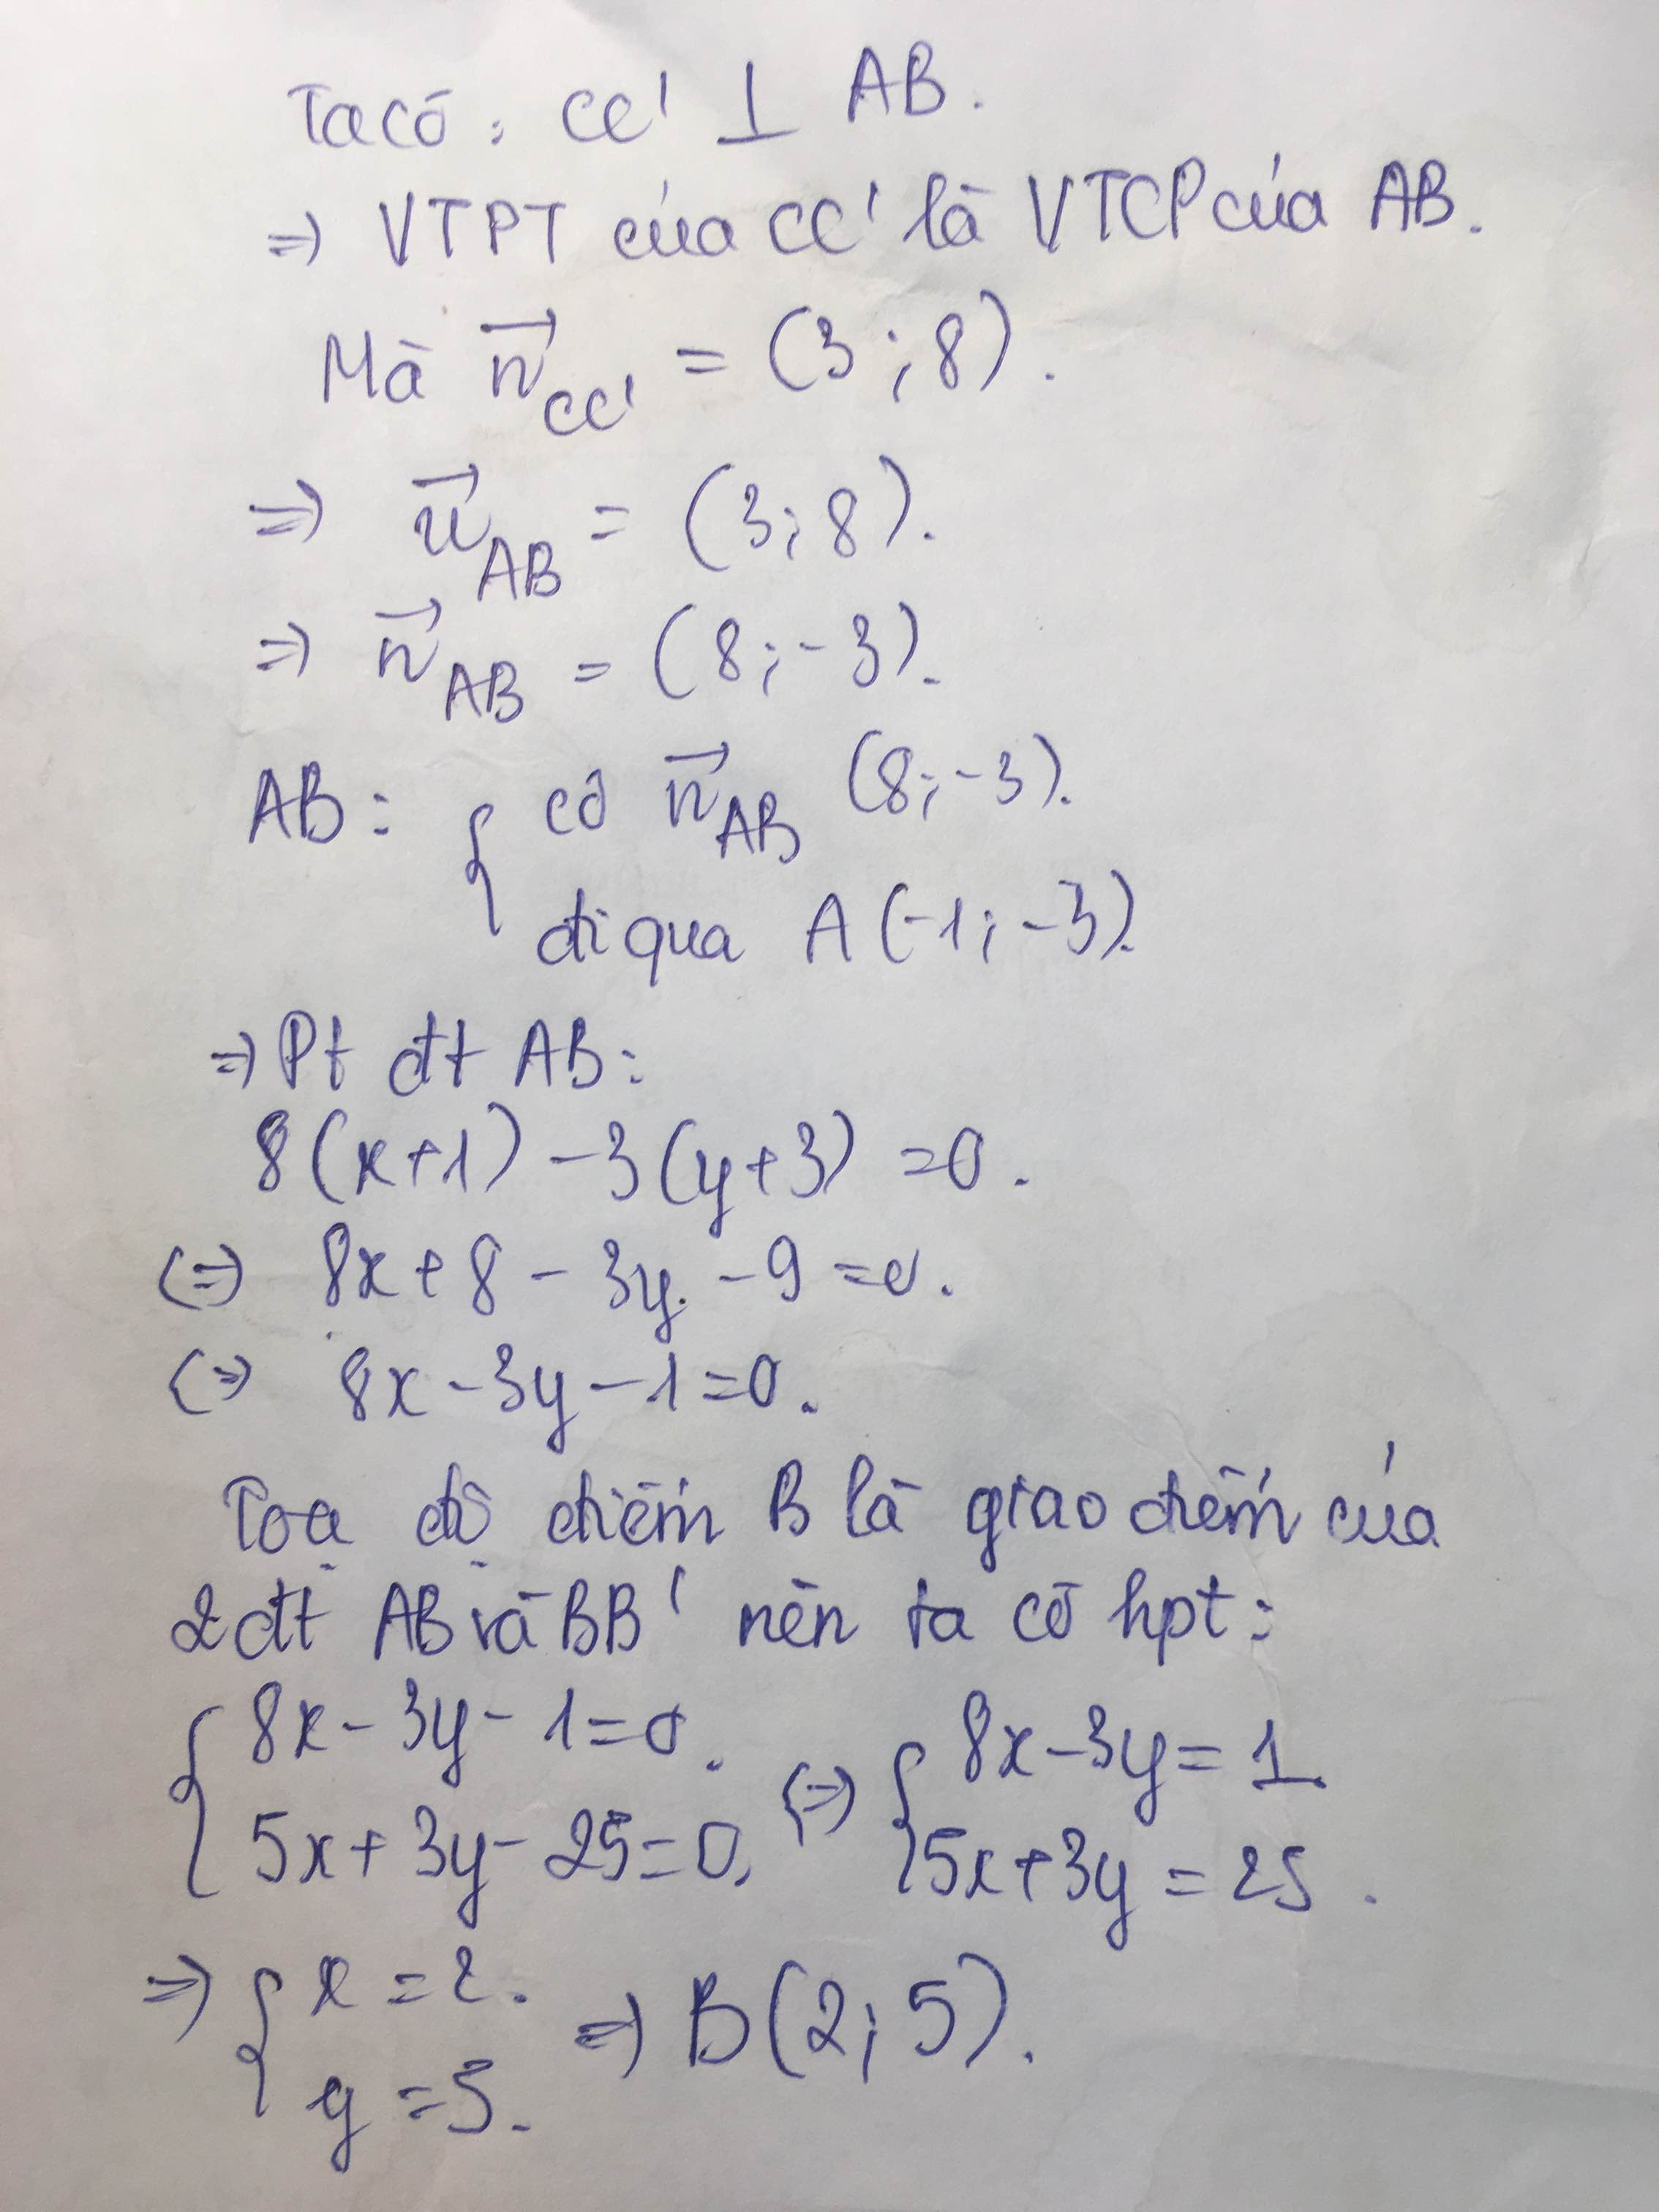 Ta có : CC' ⊥ AB.
=> VTPT của CC' là VTCP của AB.
Mà n⃗ CC' = (3 ; 8).
=> u⃗ AB = (3 ; 8).
=> n⃗ AB = (8 ; -3).
AB : { có n⃗ AB (8 ; -3).
đi qua A (-1 ; -3).
=> Pt đt AB :
8(x+1) - 3(y+3) = 0.
(=) 8x + 8 - 3y - 9 = 0.
(=) 8x - 3y - 1 = 0.
Toạ độ điểm B là giao điểm của
2 đt AB và BB' nên ta có hpt :
{ 8x - 3y - 1 = 0. (=) { 8x - 3y = 1.
5x + 3y - 25 = 0. 5x + 3y = 25.
=> { x = 2. => B(2 ; 5).
y = 5.